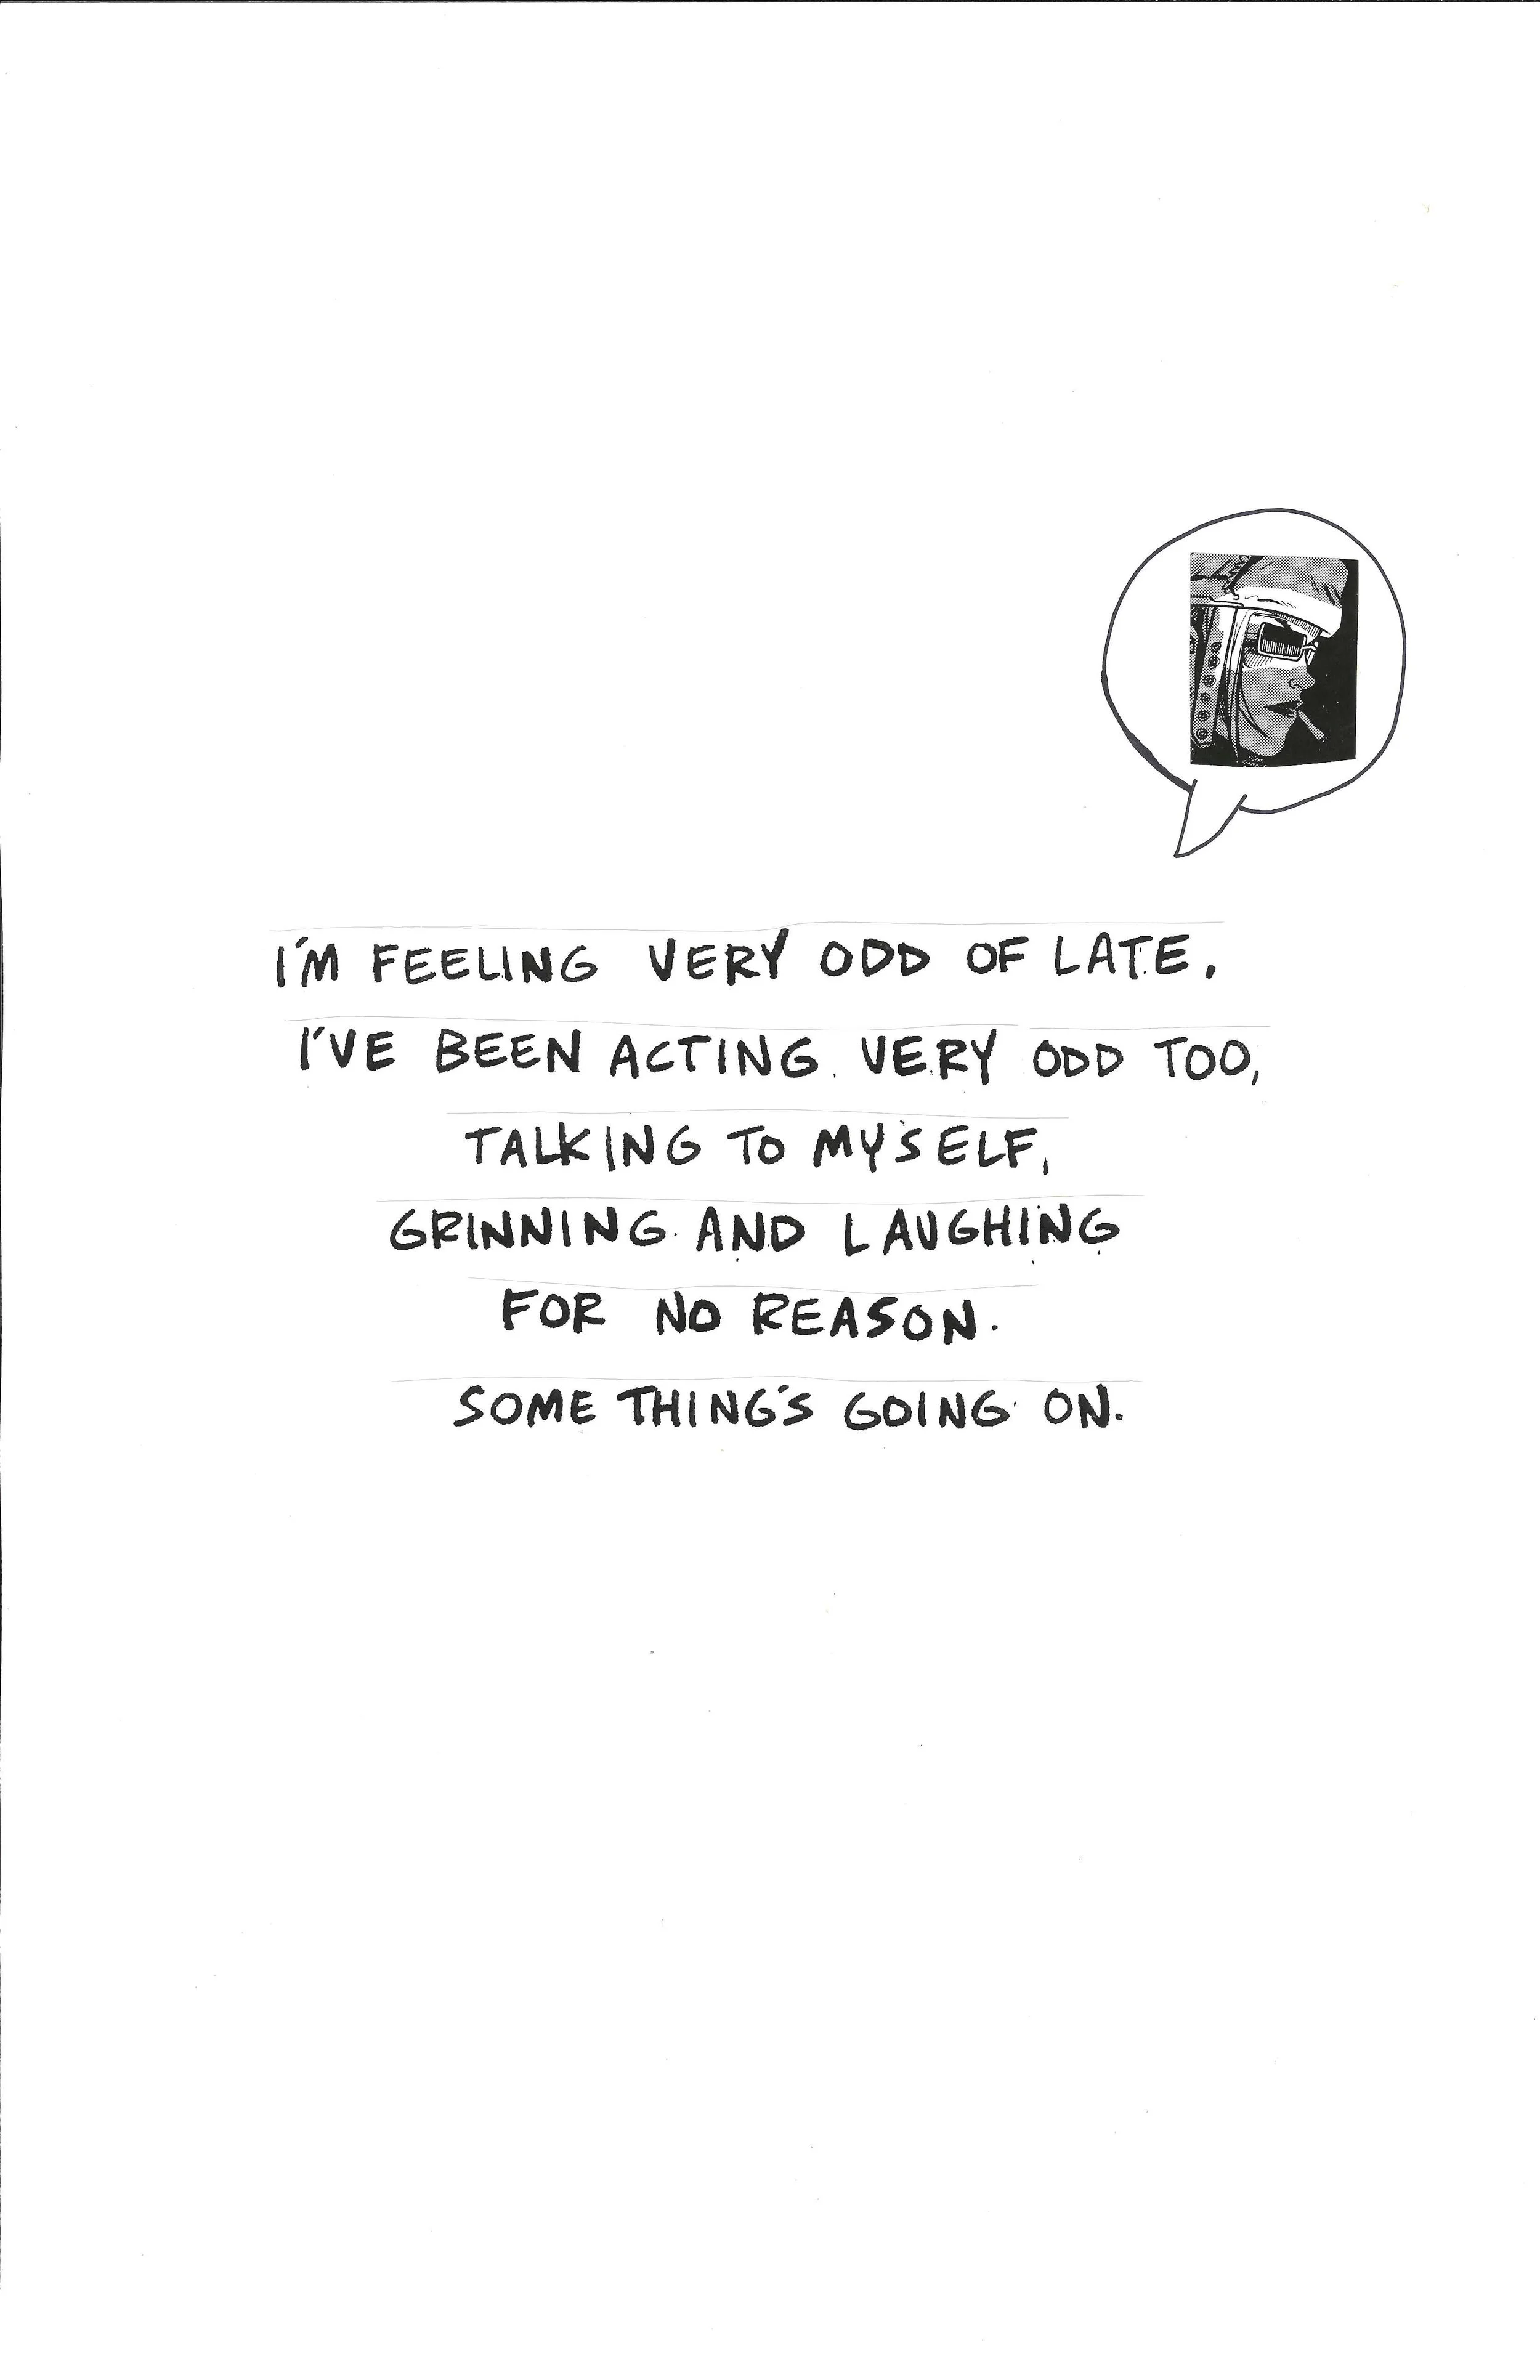 I'M FEELING VERY ODD OF LATE.
I'VE BEEN ACTING VERY ODD TOO,
TALKING TO MYSELF,
GRINNING AND LAUGHING
FOR NO REASON.
SOMETHING'S GOING ON.